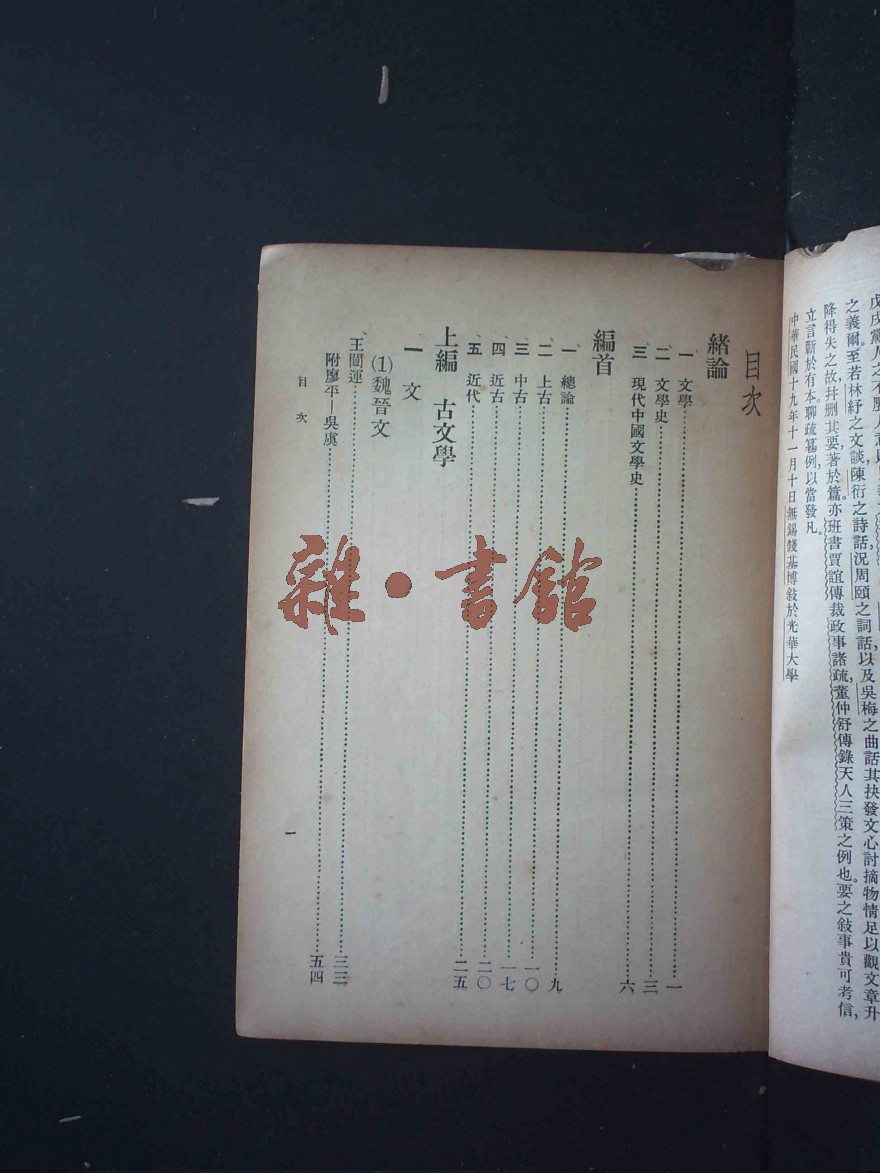 之義爾。至若林紓之文談,陳衍之詩話,況周頤之詞話,以及吳梅之曲話,其抉發文心,討摘物情,足以觀文章升
降得失之故,幷删其要,著於篇。亦班書賈誼傳裁政事諸疏,董仲舒傳錄天人三策之例也。要之敍事貴可考信,
立言蘄於有本。聊疏纂例,以當發凡。
中華民國十九年十一月十日無錫錢基博敍於光華大學
目次
緒論
一 文學……一
二 文學史……三
三 現代中國文學史……六
編首
一 總論……九
二 上古……一〇
三 中古……一七
四 近古……二〇
五 近代……二五
上編 古文學
一 文
(1)魏晉文
王闓運……三三
附廖平—吳虞……五四
目次
一
雜·書館